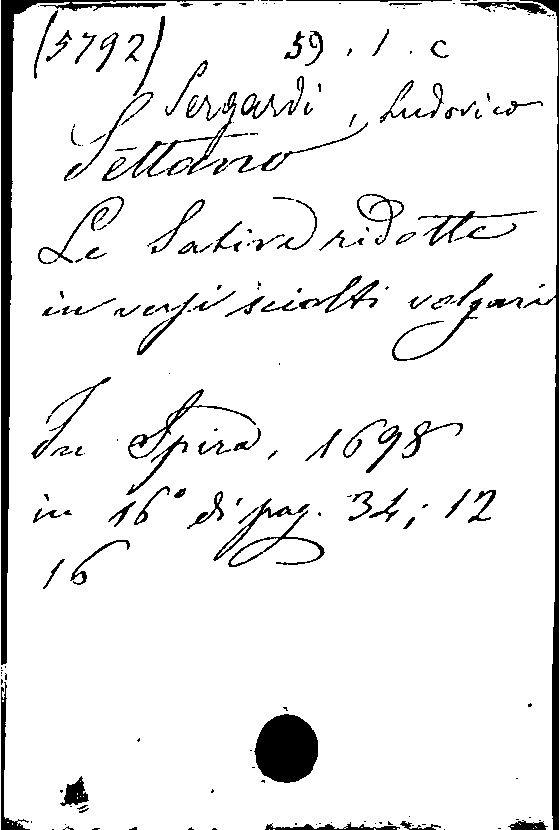 (5792) 59.1.c
Sergardi, Ludovico
Settano
Le Satire ridotte
in versi sciolti volgari
In Spira, 1698
in 16° di pag. 34; 12
16